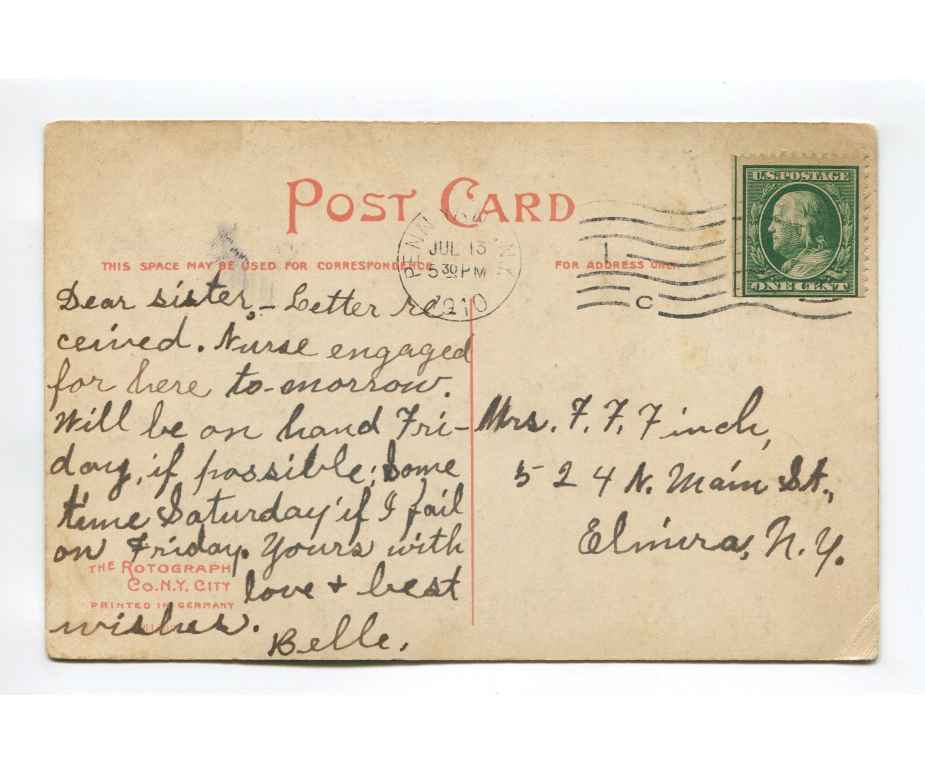 POST CARD
PENN YAN N.Y.
JUL 13
5 30 PM
1910
1
C
U.S. POSTAGE
ONE CENT
THIS SPACE MAY BE USED FOR CORRESPONDENCE
FOR ADDRESS ONLY
Dear sister,- Letter re
ceived. Nurse engaged
for here to-morrow.
Will be on hand Fri-
day, if possible; Some
time Saturday if I fail
on Friday. Yours with
love + best
wishes.
Belle.
THE ROTOGRAPH
CO. N.Y. CITY
PRINTED IN GERMANY
Mrs. F. F. Finch,
524 N. Main St.,
Elmira, N.Y.